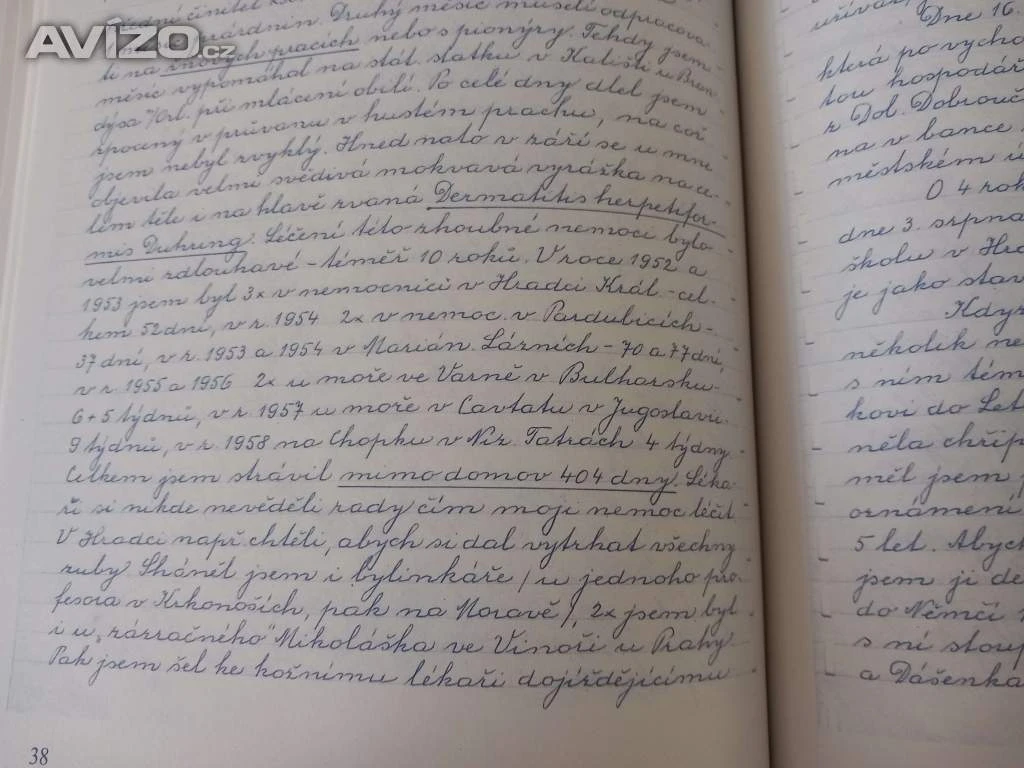 AVÍZO.cz
řádní činitel
prázdnin. Druhý měsíc museli odpracova-
ti na žňových pracích nebo s pionýry. Tehdy jsem
měsíc vypomáhal na stát. statku v Kališti u Bran-
dýsa n/Orl. při mlácení obilí. Po celé dny dlel jsem
zpocený v průvanu v hustém prachu, na což
jsem nebyl zvyklý. Ihned nato v září se u mne
objevila velmi svědivá mokvavá vyrážka na ce-
lém těle i na hlavě zvaná Dermatitis herpetifor-
mis Duhring. Léčení této zhoubné nemoci bylo
velmi zdlouhavé - téměř 10 roků. V roce 1952 a
1953 jsem byl 3x v nemocnici v Hradci Král. - cel-
kem 52 dní, v r. 1954 2x v nemoc. v Pardubicích -
37 dní, v r. 1953 a 1954 v Marián. Lázních - 70 a 77 dní,
v r. 1955 a 1956 2x u moře ve Varně v Bulharsku -
6 + 5 týdnů, v r. 1957 u moře v Cavtatu v Jugoslavii
9 týdnů, v r. 1958 na Chopku v Niz. Tatrách 4 týdny.
Celkem jsem strávil mimo domov 404 dny. Léka-
ři si nikde nevěděli rady čím moji nemoc léčit.
V Hradci např. chtěli, abych si dal vytrhat všechny
zuby. Sháněl jsem i bylinkáře / u jednoho pro-
fesora v Krkonoších, pak na Moravě /, 2x jsem byl
i u „zázračného" Mikoláška ve Vinoři u Prahy.
Pak jsem šel ke kožnímu lékaři dojíždějícímu
38
užívá
Dne 16.
která po vycho
tou hospodář
z Dol. Dobrouč
na v bance.
městském ú
O 4 rok
dne 3. srpna
školu v Hra
je jako stav
Když
několik ne
s ním tém
kovi do Let
něla chřip
měl jsem
oznámení
5 let. Abych
jsem ji de
do Němčí
s ní stoup
a Dášenka